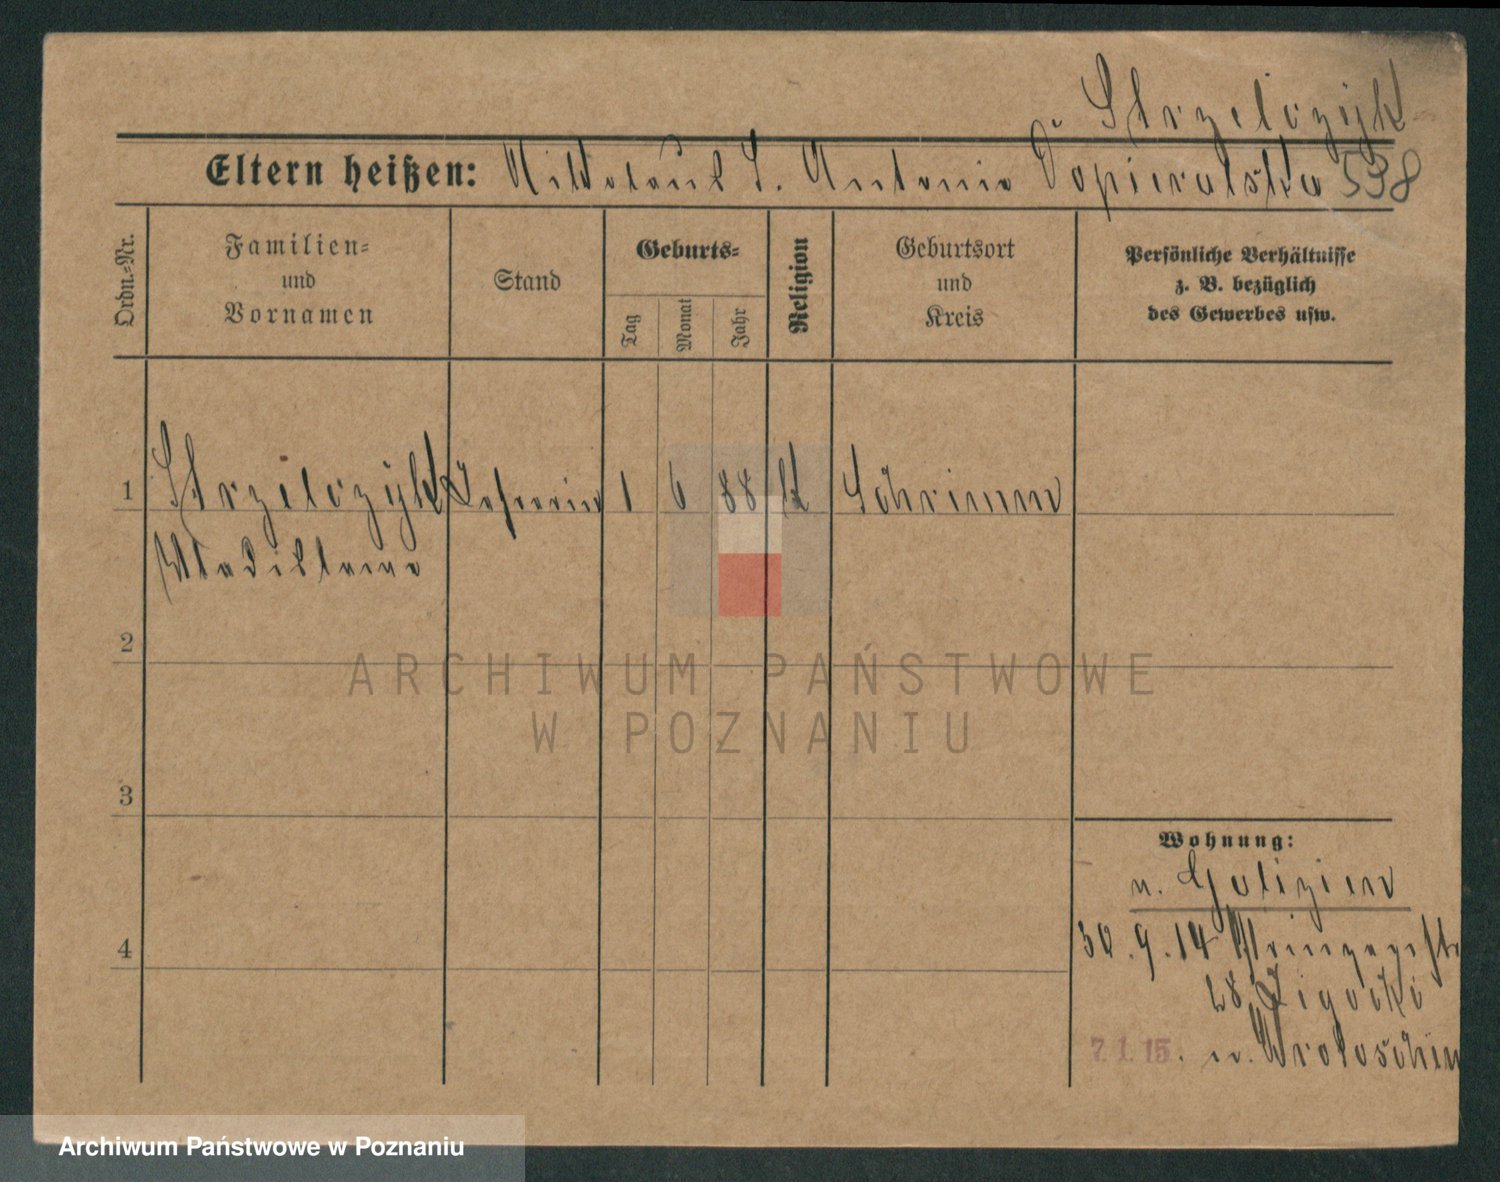 Strzelczyk
Eltern heißen: Nikolaus S. Antonie Dopieralska 538
Ordn.-Nr.
Familien-
und
Vornamen
Stand
Geburts-
Tag
Monat
Jahr
Religion
Geburtsort
und
Kreis
Persönliche Verhältnisse
z. B. bezüglich
des Gewerbes usw.
1 Strzelczyk 1 6 88 K Schrimm
Wladislawa
2
ARCHIWUM PAŃSTWOWE
W POZNANIU
3
Wohnung:
n. Galizien
4
30.9.14
28
7.1.15. n.
Archiwum Państwowe w Poznaniu